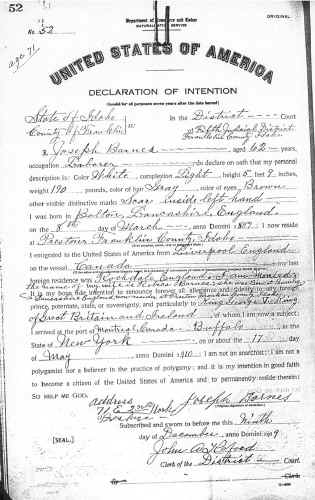 52
ORIGINAL
No. 52
Department of Commerce and Labor
NATURALIZATION SERVICE
age 71
UNITED STATES OF AMERICA
DECLARATION OF INTENTION
(Invalid for all purposes seven years after the date hereof)
State of Idaho
County of Franklin ss:
In the District Court
of Fifth Judicial District
Franklin County Idaho
I, Joseph Barnes, aged 62 years,
occupation Laborer, do declare on oath that my personal
description is: Color White, complexion Light, height 5 feet 9 inches,
weight 190 pounds, color of hair Gray, color of eyes Brown
other visible distinctive marks Scar inside left hand
I was born in Bolton, Lancashire, England,
on the 8th day of March, anno Domini I now reside
at Preston Franklin County, Idaho
I emigrated to the United States of America from Liverpool England
on the vessel Canada my last
foreign residence was Rochdale England. I am married,
the name of my wife is
It is my bona fide intention to renounce forever all allegiance and fidelity to any foreign
prince, potentate, state, or sovereignty, and particularly to King George V, King
of Great Britain and Ireland, of whom I am now a subject;
I arrived at the port of Montreal Canada - Buffalo, in the
State of New York on or about the 17 day
of May, anno Domini 1910; I am not an anarchist; I am not a
polygamist nor a believer in the practice of polygamy; and it is my intention in good faith
to become a citizen of the United States of America and to permanently reside therein:
SO HELP ME GOD.
address
Joseph Barnes
Preston
Subscribed and sworn to before me this Ninth
[SEAL.]
day of December, anno Domini 1919
John A.
Clerk of the District Court.